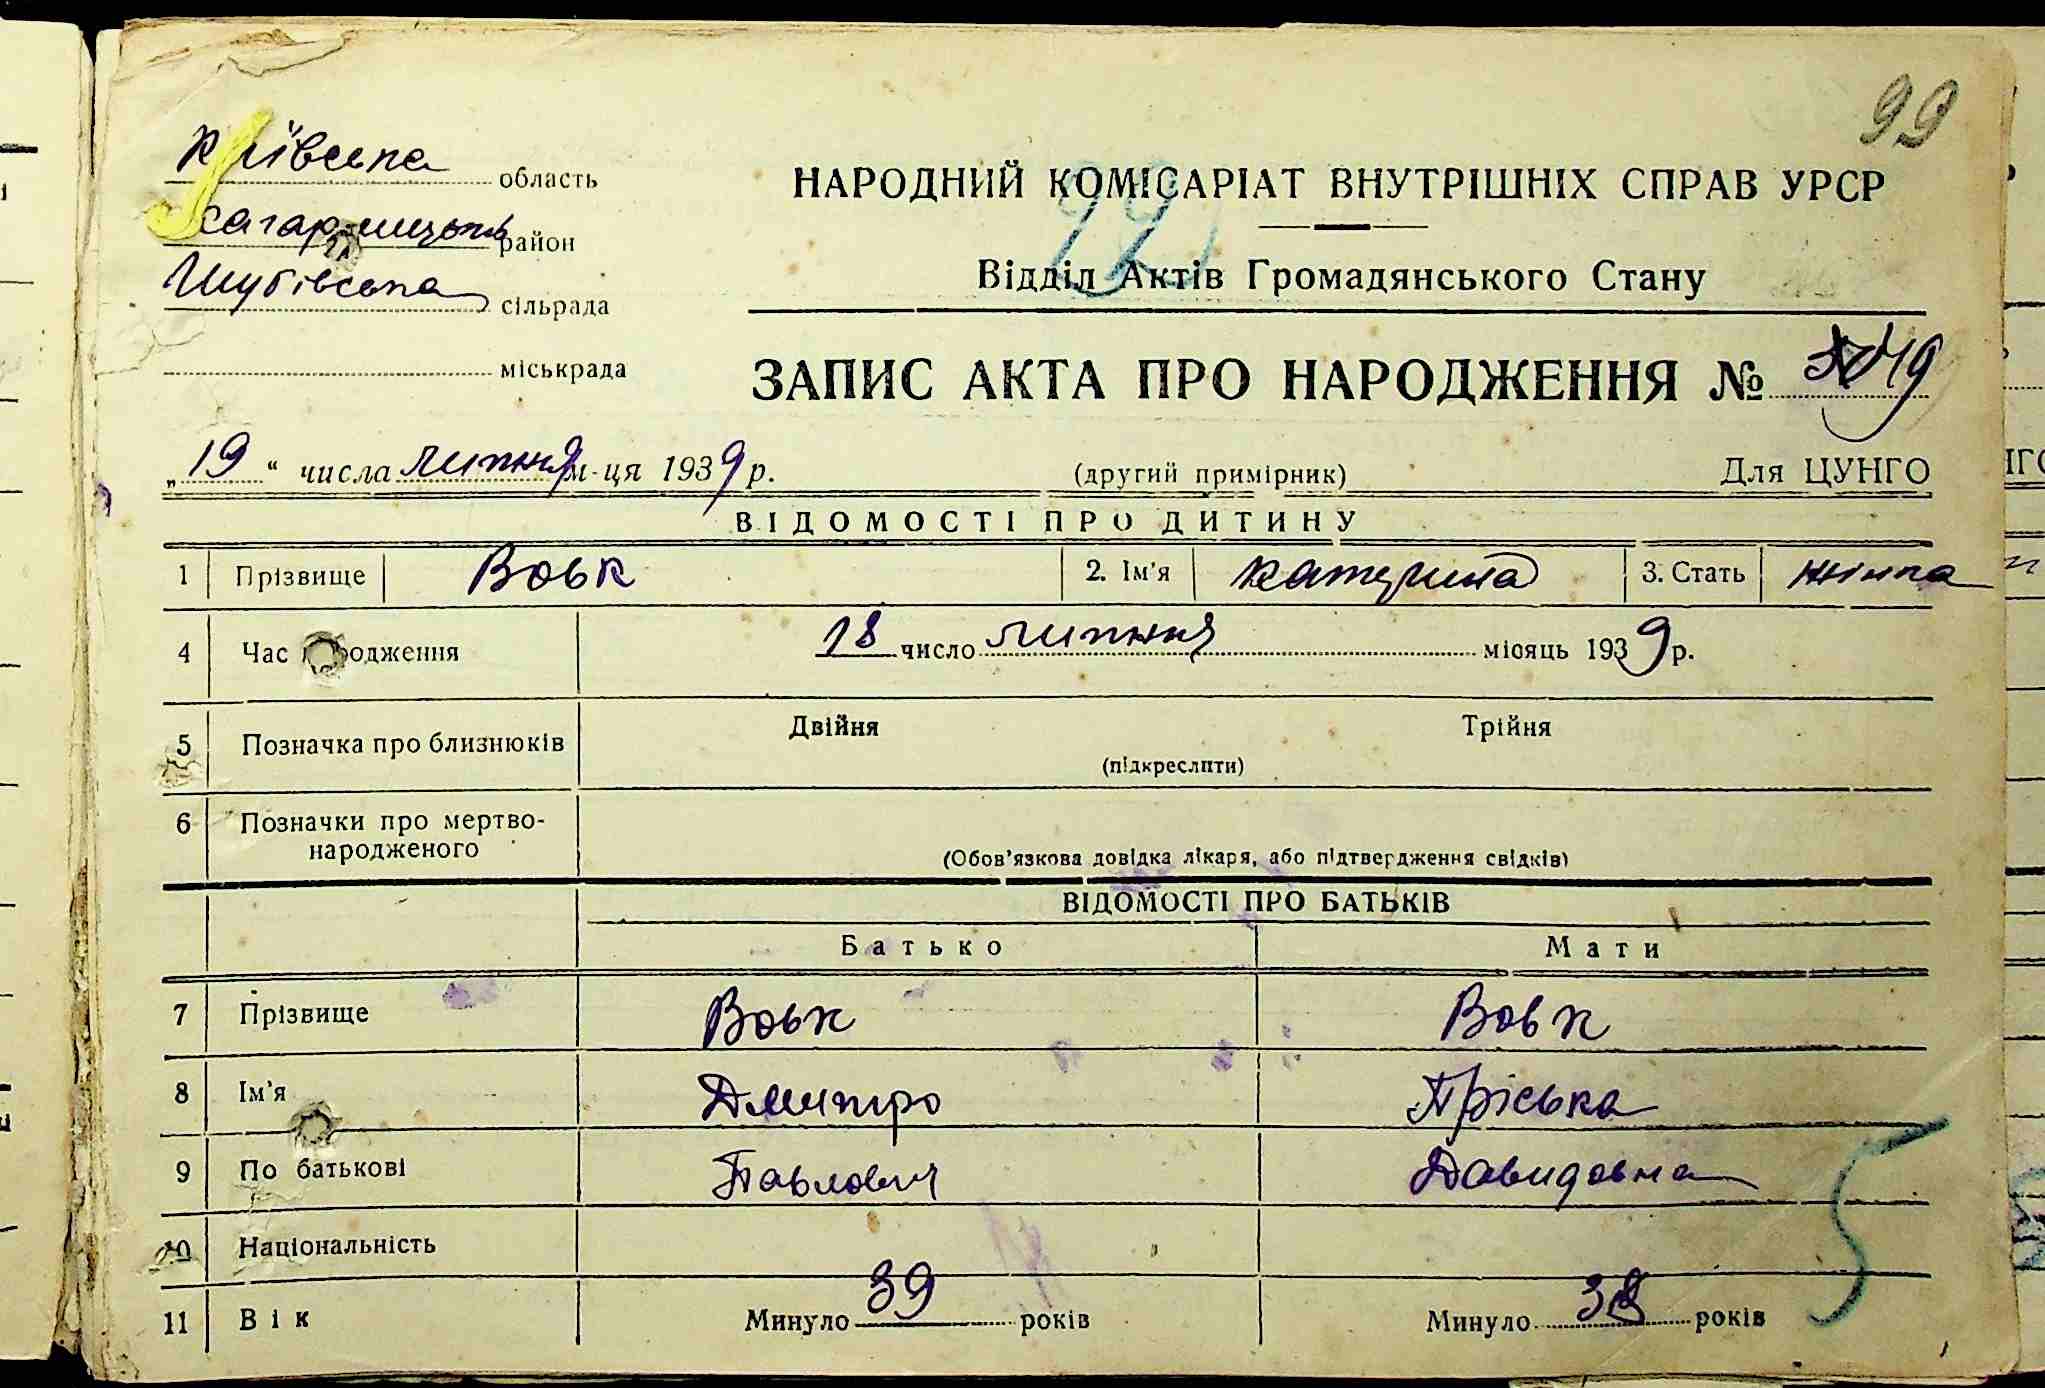 99
Київська область
Кагарлицький район
Шубівська сільрада
міськрада
НАРОДНИЙ КОМІСАРІАТ ВНУТРІШНІХ СПРАВ УРСР
22
Відділ Актів Громадянського Стану
ЗАПИС АКТА ПРО НАРОДЖЕННЯ №
„19“ числа липня м-ця 1939 р.
(другий примірник)
Для ЦУНГО
ВІДОМОСТІ ПРО ДИТИНУ
1 Прізвище Вовк 2. Ім'я Катерина 3. Стать жінка
4 Час народження 18 число липня місяць 1939 р.
5 Позначка про близнюків Двійня Трійня
(підкреслити)
6 Позначки про мертво-
народженого
(Обов'язкова довідка лікаря, або підтвердження свідків)
ВІДОМОСТІ ПРО БАТЬКІВ
Батько Мати
7 Прізвище Вовк Вовк
8 Ім'я Дмитро Пріська
9 По батькові Павлович Давидовна
10 Національність
5
11 Вік Минуло 39 років Минуло років